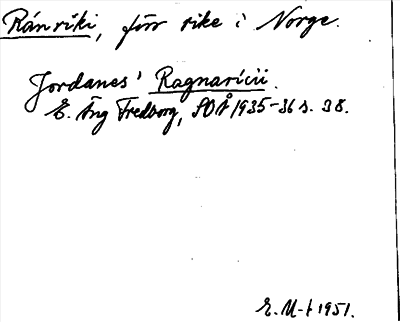 Ránríki, förr rike i Norge.
Jordanes' Ragnaricii.
E. Äng Fredborg, SOÅ 1935-36 s. 38.
E. M-t 1951.